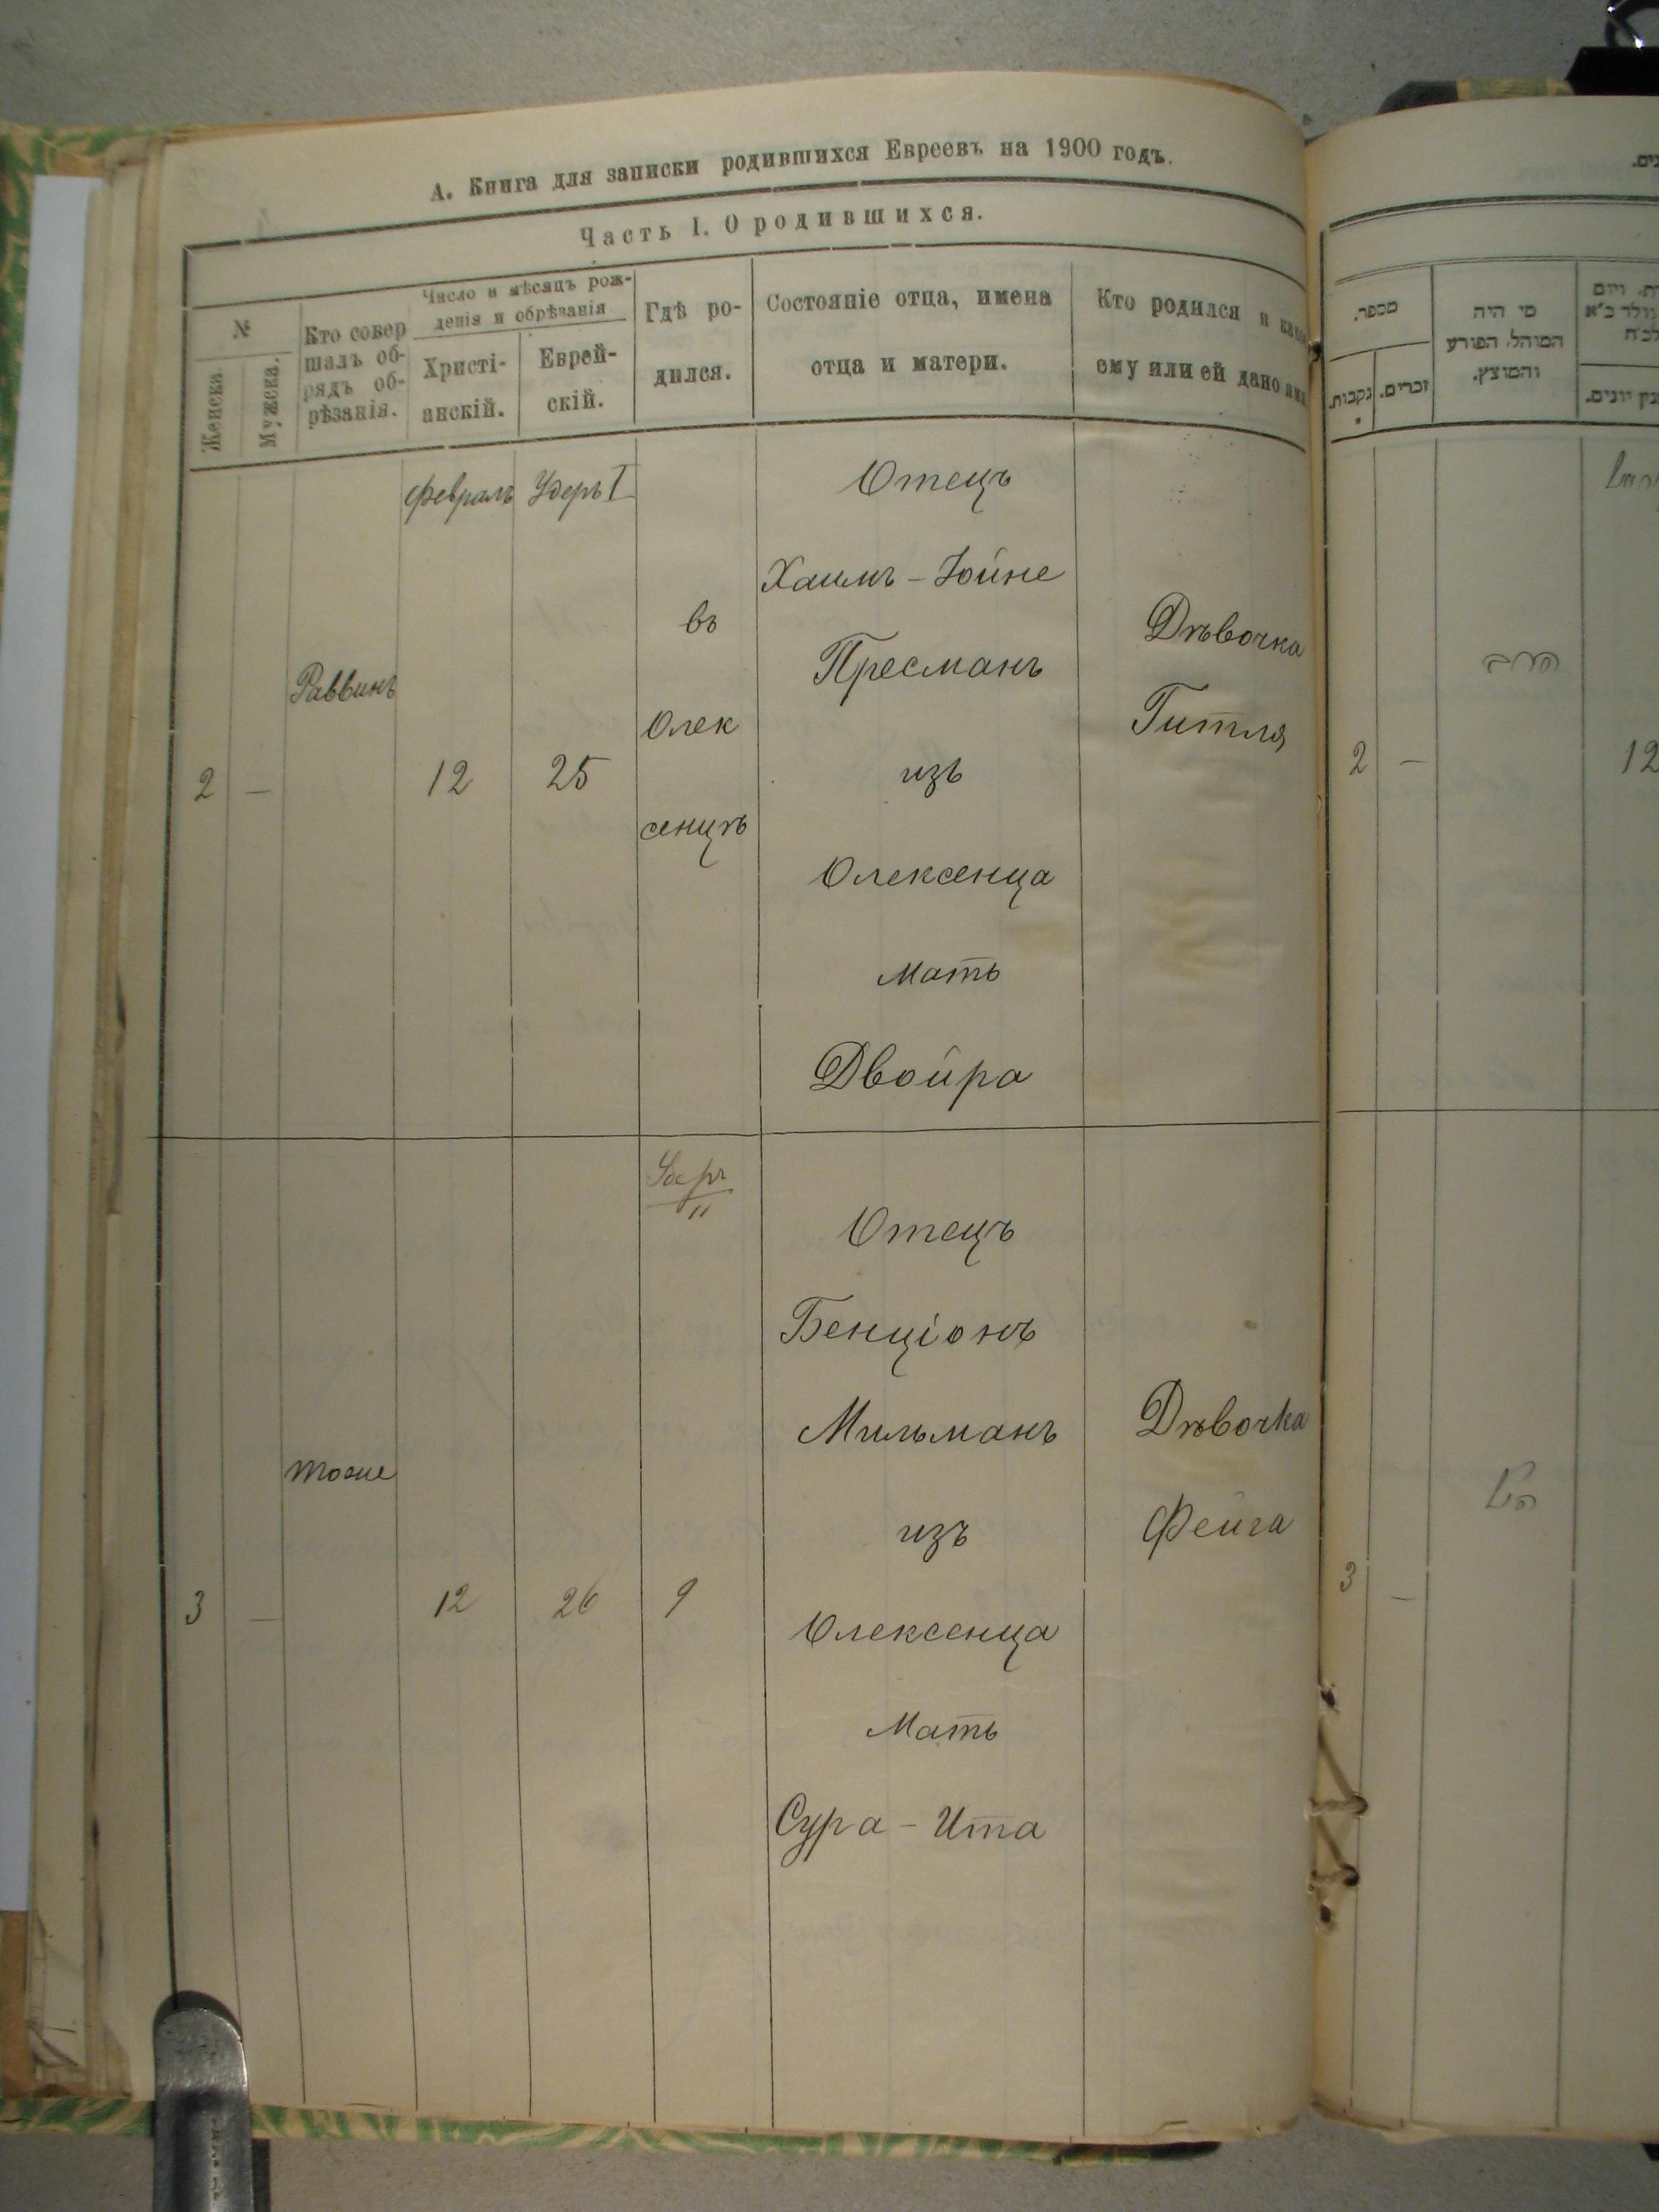 А. Книга для записки родившихся Евреевъ на 1900 годъ.
Часть I. О родившихся.
№
Женска.
Мужска.
Кто совер
шалъ об-
рядъ об-
рѣзанія.
Число и мѣсяцъ рож-
денія и обрѣзанія
Христі-
анскій.
Еврей-
скій.
Гдѣ ро-
дился.
Состояніе отца, имена
отца и матери.
Кто родился и
ему или ей дано
Февраль
Адеръ I
2
—
Раввинъ
12
25
въ
Олек
сенцѣ
Отецъ
Хаимъ-Іойне
Пресманъ
изъ
Олексенца
Мать
Двойра
Дѣвочка
Гитля
3
—
тоже
12
26
9
Отецъ
Бенціонъ
Мильманъ
изъ
Олексенца
Мать
Сура-Ита
Дѣвочка
Фейга
מספר.
נקבות.
זכרים.
מי היה
המוהל, הפורע
והמוצץ.
2
—
הרב
12
3
—